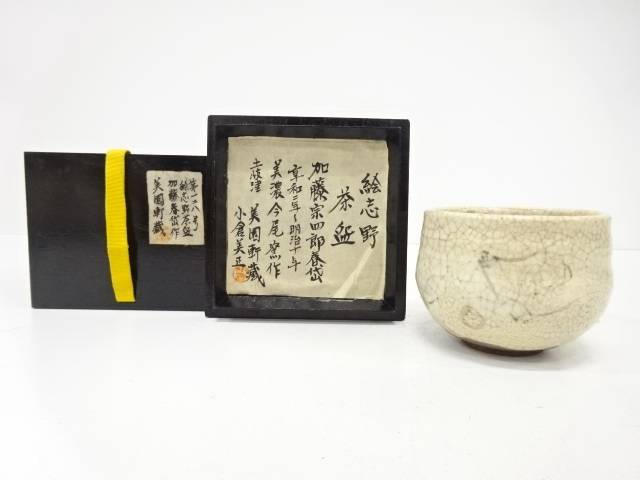 第一八号
絵志野茶盌
加藤春岱作
美園軒蔵
絵志野
茶盌
加藤宗四郎春岱
享和二年〜明治十年
美濃今尾窯作
土岐津 美園軒蔵
小倉美正